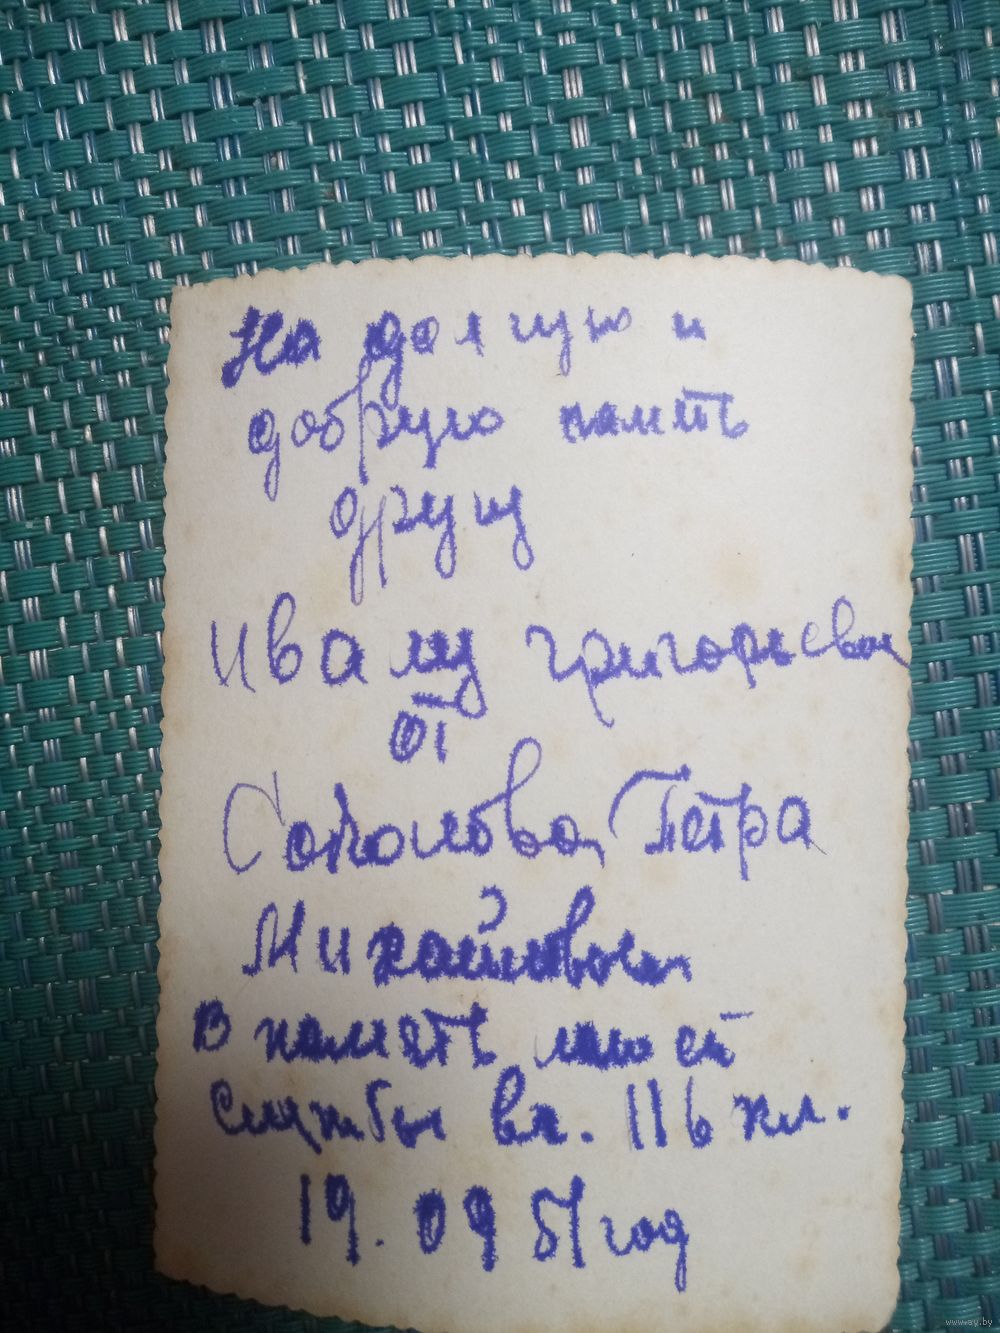 На долгую и
добрую память
другу
Ивану Григорьевич
от
Соколова Петра
Михайловича
В память нашей
службы вч. 116 пл.
19. 09 51 год
www.ay.by